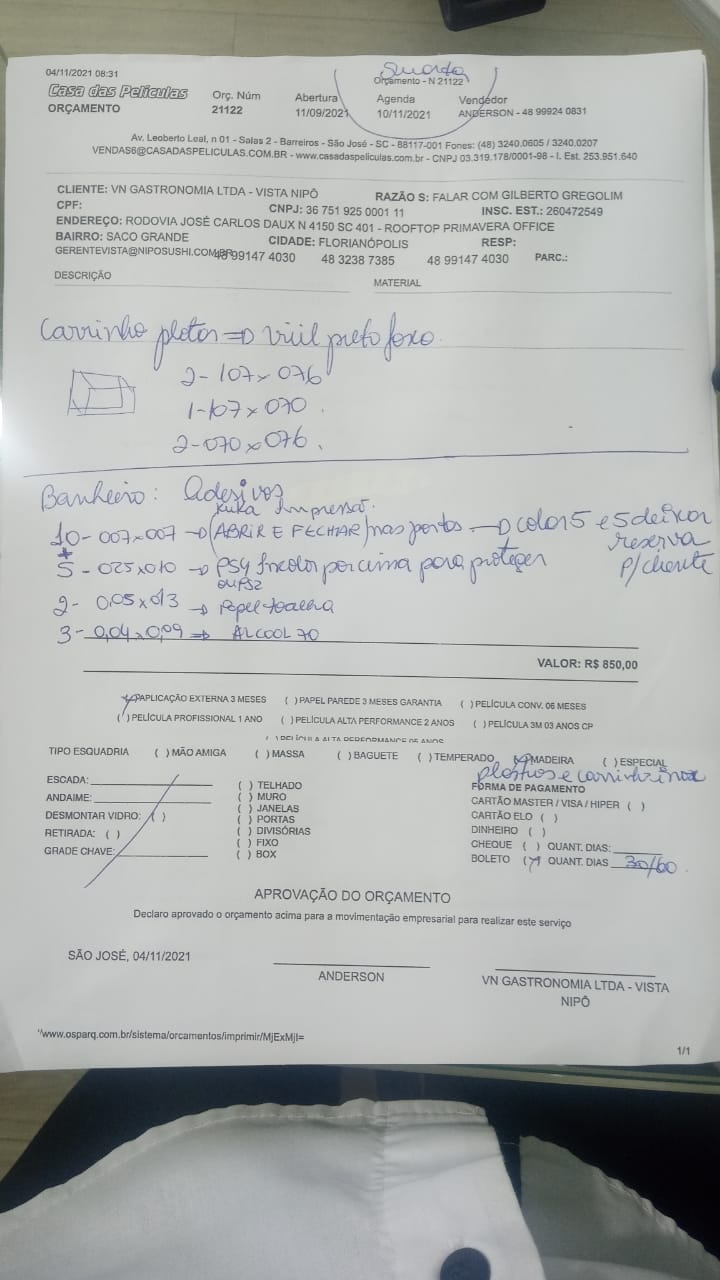 04/11/2021 08:31
Orçamento - N 21122
Casa das Películas
ORÇAMENTO
Orç. Núm
21122
Abertura
11/09/2021
Agenda
10/11/2021
Vendedor
ANDERSON - 48 99924 0831
Av. Leoberto Leal, n 01 - Salas 2 - Barreiros - São José - SC - 88117-001 Fones: (48) 3240.0605 / 3240.0207
VENDAS6@CASADASPELICULAS.COM.BR - www.casadaspeliculas.com.br - CNPJ 03.319.178/0001-98 - I. Est. 253.951.640
CLIENTE: VN GASTRONOMIA LTDA - VISTA NIPÔ RAZÃO S: FALAR COM GILBERTO GREGOLIM
CPF: CNPJ: 36 751 925 0001 11 INSC. EST.: 260472549
ENDEREÇO: RODOVIA JOSÉ CARLOS DAUX N 4150 SC 401 - ROOFTOP PRIMAVERA OFFICE
BAIRRO: SACO GRANDE CIDADE: FLORIANÓPOLIS RESP:
GERENTEVISTA@NIPOSUSHI.COM.BR 48 99147 4030 48 3238 7385 48 99147 4030 PARC.:
DESCRIÇÃO MATERIAL
Carrinho plotar => preto foxo
2- 107x076
1-107x070
2-070x076
Banheiro: Adesivos
Impressão
10- 007x007 -> (ABRIR E FECHAR) nas portas -> color 5 e 5 deixar
reserva
p/cliente
+
5 - 025x010 -> PS4 incolor por cima para proteger
ou PS2
2- 0,05x013 -> Papel toalha
3- 0,04x0,09 => ALCOOL 70
VALOR: R$ 850,00
( ) APLICAÇÃO EXTERNA 3 MESES ( ) PAPEL PAREDE 3 MESES GARANTIA ( ) PELÍCULA CONV. 06 MESES
( ) PELÍCULA PROFISSIONAL 1 ANO ( ) PELÍCULA ALTA PERFORMANCE 2 ANOS ( ) PELÍCULA 3M 03 ANOS CP
( ) PELÍCULA ALTA PERFORMANCE 05 ANOS
TIPO ESQUADRIA ( ) MÃO AMIGA ( ) MASSA ( ) BAGUETE ( ) TEMPERADO (x) MADEIRA ( ) ESPECIAL
plastros e carrinho inox
ESCADA:
ANDAIME:
DESMONTAR VIDRO: ( )
RETIRADA: ( )
GRADE CHAVE:
( ) TELHADO
( ) MURO
( ) JANELAS
( ) PORTAS
( ) DIVISÓRIAS
( ) FIXO
( ) BOX
FORMA DE PAGAMENTO
CARTÃO MASTER / VISA / HIPER ( )
CARTÃO ELO ( )
DINHEIRO ( )
CHEQUE ( ) QUANT. DIAS:
BOLETO (x) QUANT. DIAS 30/60
APROVAÇÃO DO ORÇAMENTO
Declaro aprovado o orçamento acima para a movimentação empresarial para realizar este serviço
SÃO JOSÉ, 04/11/2021
ANDERSON
VN GASTRONOMIA LTDA - VISTA
NIPÔ
www.osparq.com.br/sistema/orcamentos/imprimir/MjExMjI=
1/1